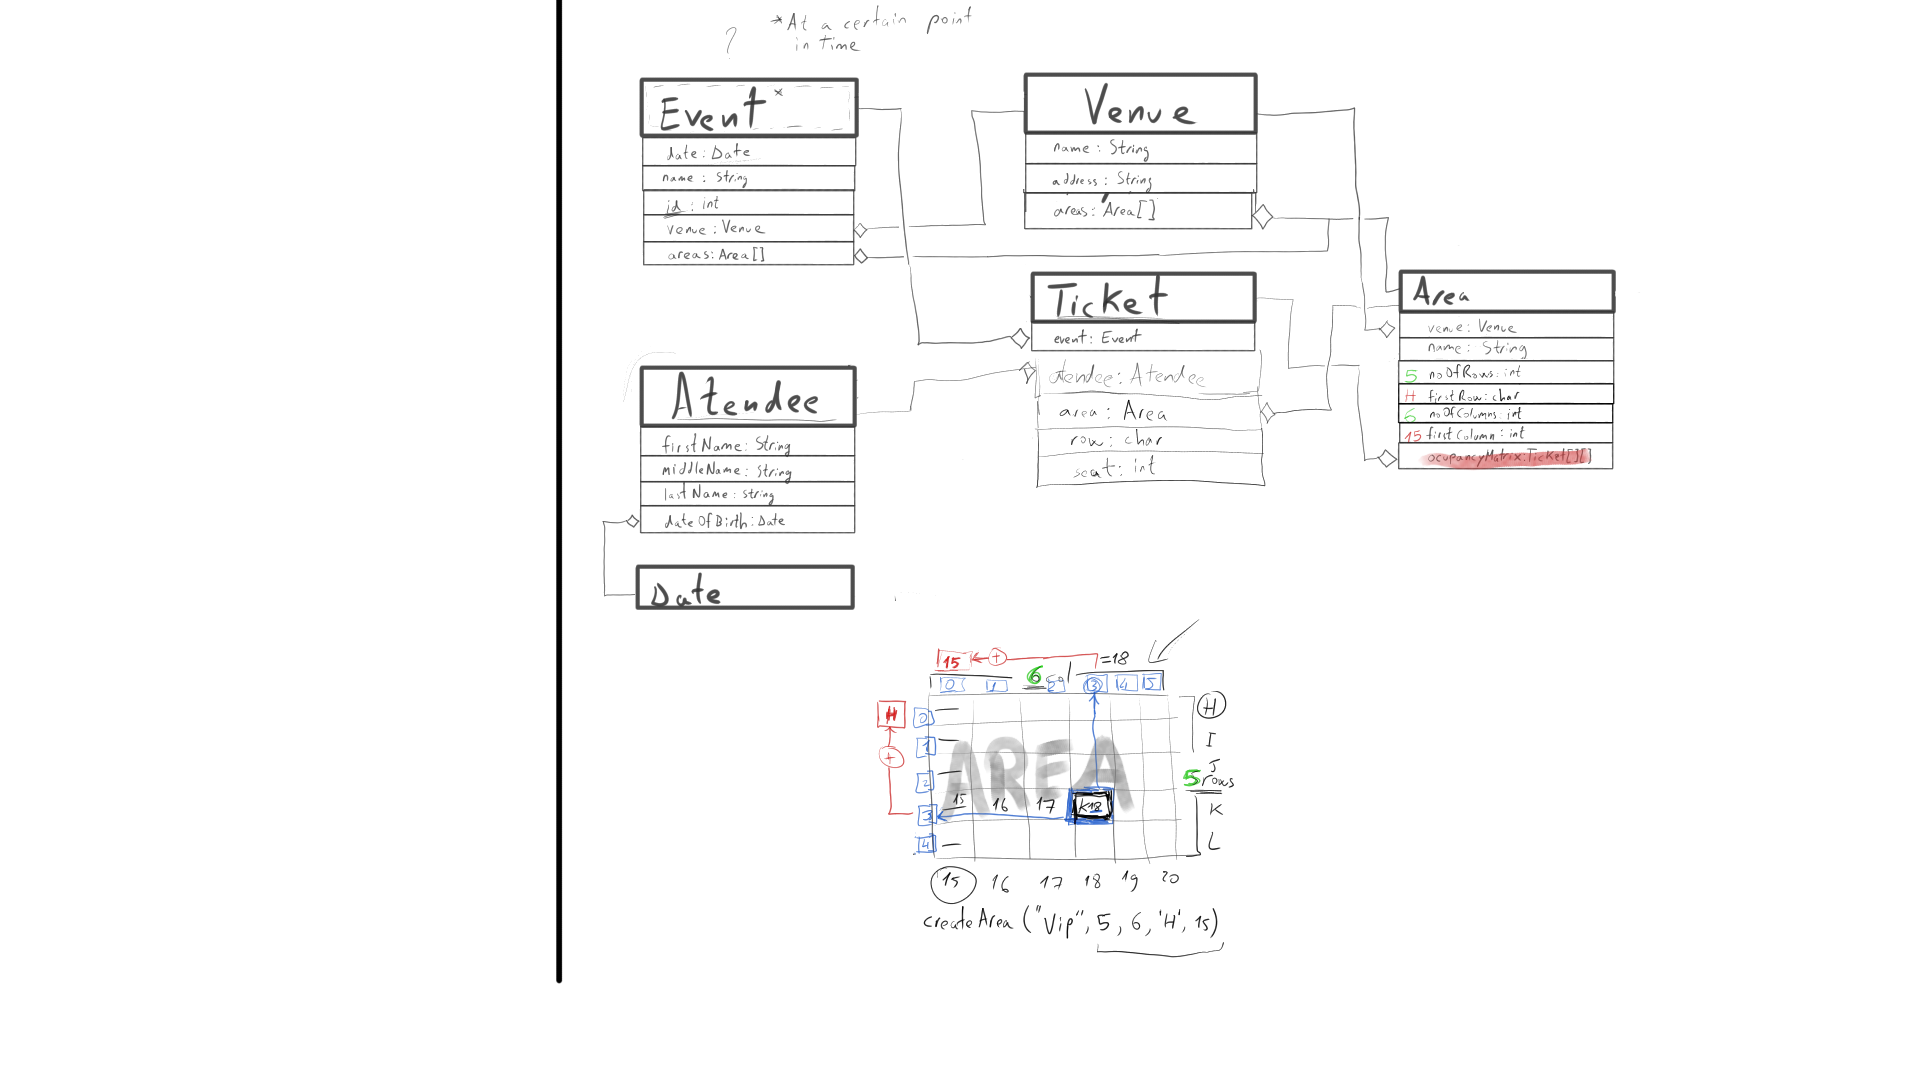 ?
*At a certain point
in time
Event*
date: Date
name: String
id: int
venue: Venue
areas: Area[]
Venue
name: String
address: String
areas: Area[]
Ticket
event: Event
atendee: Atendee
area: Area
row: char
seat: int
Area
venue: Venue
name: String
5 noOfRows: int
H firstRow: char
6 noOfColumns: int
15 firstColumn: int
ocupancyMatrix: Ticket[][]
Atendee
firstName: String
middleName: String
lastName: String
dateOfBirth: Date
Date
15 + =18
6
0 1 2 3 4 5
H 0 H
1 I
+ AREA J
2 5 rows
3 15 16 17 K18 K
4 L
15 16 17 18 19 20
createArea ("Vip", 5, 6, 'H', 15)